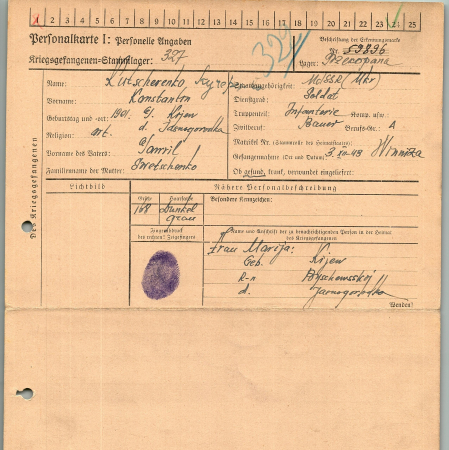 1 2 3 4 5 6 7 8 9 10 11 12 13 14 15 16 17 18 19 20 21 22 23 24 25
Personalkarte I: Personelle Angaben
Beschriftung der Erkennungsmarke
Nr. 53896
Kriegsgefangenen-Stammlager: 327
327
Lager:
Des Kriegsgefangenen
Name:
Staatsangehörigkeit: UdSSR (Ukr)
Vorname: Konstantin
Dienstgrad: Soldat
Geburtstag und -ort: 1901. G. Kijew
Truppenteil: Infanterie Komp. usw.:
d. Jasnogorodka
Religion: ort.
Zivilberuf: Bauer Berufs-Gr.: A
Matrikel Nr. (Stammrolle des Heimatstaates):
Vorname des Vaters: Gawriil
Gefangennahme (Ort und Datum): 3.XII.43 Winniza
Familienname der Mutter:
Ob gesund, krank, verwundet eingeliefert:
Lichtbild
Nähere Personalbeschreibung
Größe
Haarfarbe
Besondere Kennzeichen:
168
Dunkel
Grau
Fingerabdruck
des rechten! Zeigefingers
Name und Anschrift der zu benachrichtigenden Person in der Heimat
des Kriegsgefangenen
Frau Marija:
Geb. Kijew
R-n
d. Jasnogorodka
Wenden!